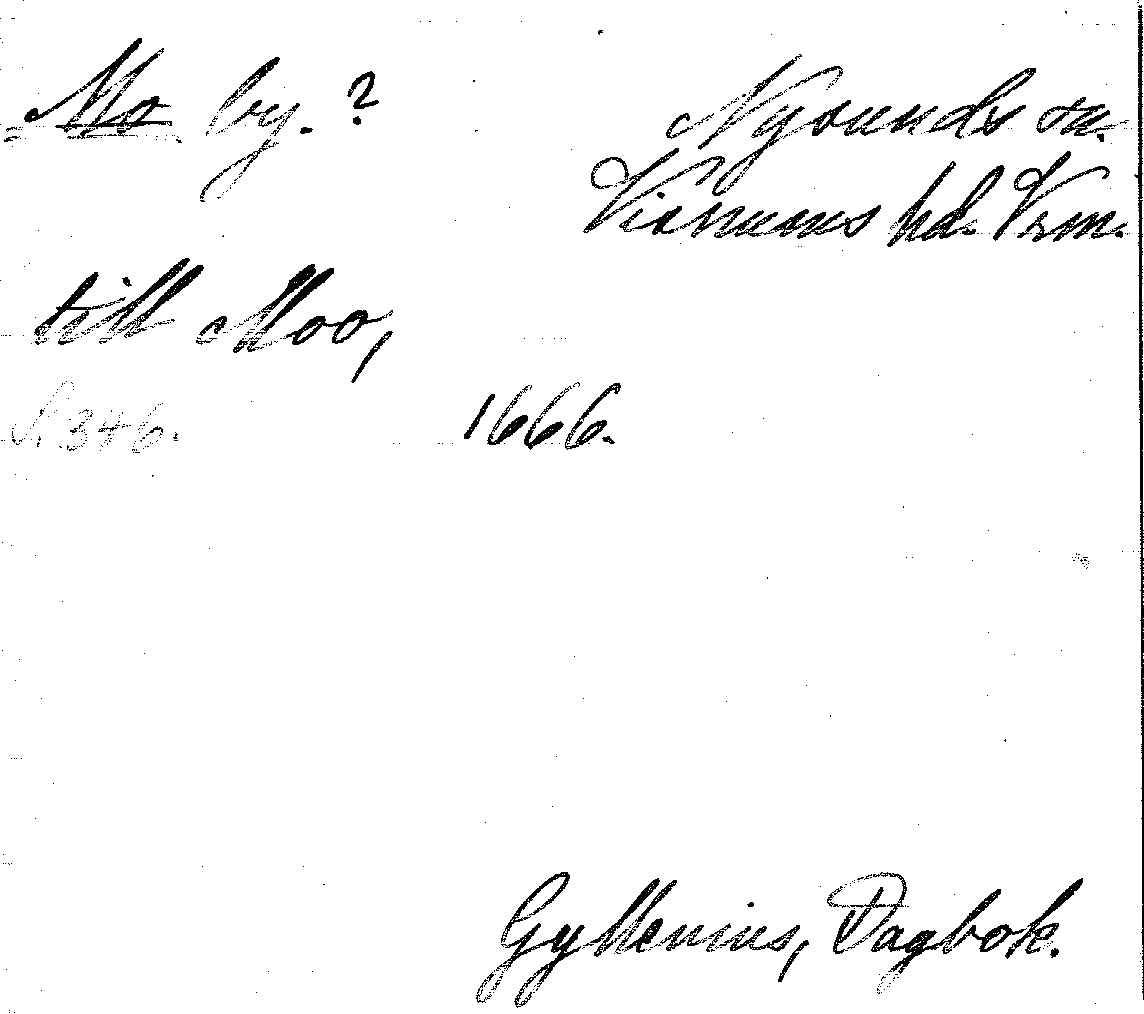 Mo by. ?
Nysunds sn.
Visnums hd. Vrm.
till Moo,
S. 346.
1666.
Gyllenius, Dagbok.